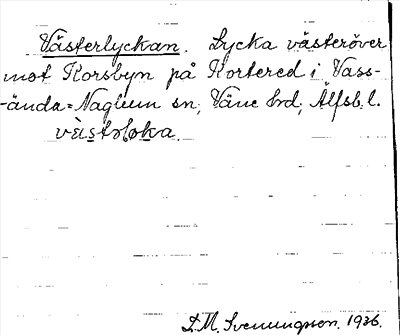 Västerlyckan. Lycka västeröver
mot Korsbyn på Kortered i Vass-
-ända=Naglum sn, Väne hd, Älfsb. l.
vä̀istɘlɘka.
D.M. Svenungsson. 1936.